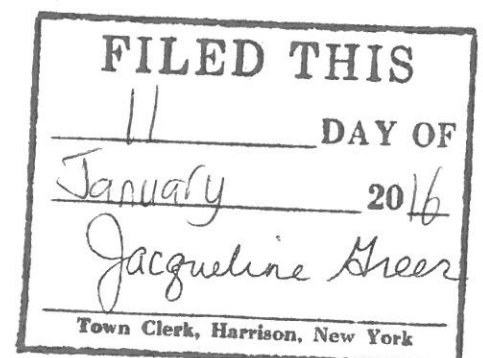 FILED THIS
11 DAY OF
January 2016
Jacqueline Greer
Town Clerk, Harrison, New York